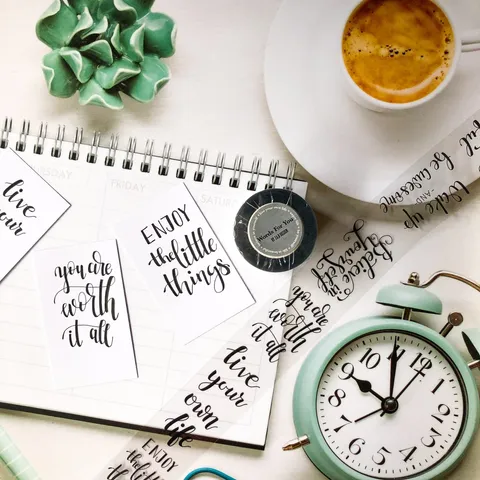 DAY
FRIDAY
SATUR
live
your
you are
worth
it all
ENJOY
the little
things
Words For You
wake up
-AND-
be awesome
Believe
in
Yourself
you are
worth
it all
live
your
own
life
ENJOY
the little
10
11
12
1
2
3
4
5
6
7
8
9